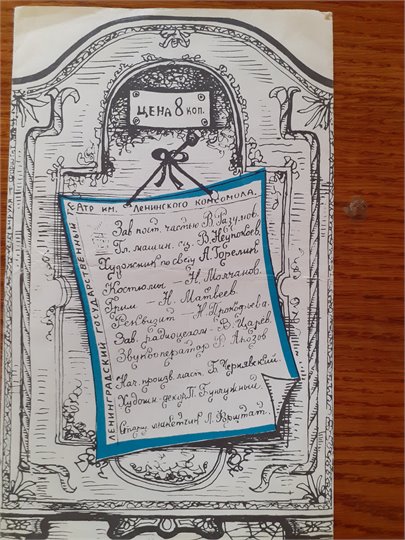 ЦЕНА 8 КОП.
ЛЕНИНГРАДСКИЙ ГОСУДАРСТВЕННЫЙ
ТЕАТР ИМ. ЛЕНИНСКОГО КОМСОМОЛА.
Зав. пост. частью В. Разумов.
Гл. машин. сц. В. Неупокоев.
Художник по свету А. Горелик
Костюмы - Н. Молчанов.
Грим - Н. Матвеев
Реквизит - Н. Прокофьева.
Зав. радиоцехом - В. Царев.
Звукоператор
Нач. произв. маст. Б. Чернявский
Художн.-декор. П. Бунчужный.
макетчик Л. Фрштат.